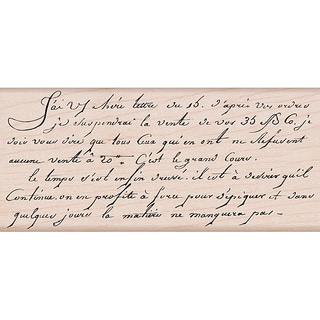 J'ai V/ chérie lettre du 15. d'après vos ordres
je suspendrai la vente de vos 35 Co, je
dois vous dire que tous Ceux qui en ont ne Refusent
aucune vente à 20" - C'est le grand Cours.
le temps s'est enfin il est à desirer qu'il
Continue, on en profite à force pour dépiquer et dans
quelques jours la matière ne manquera pas -